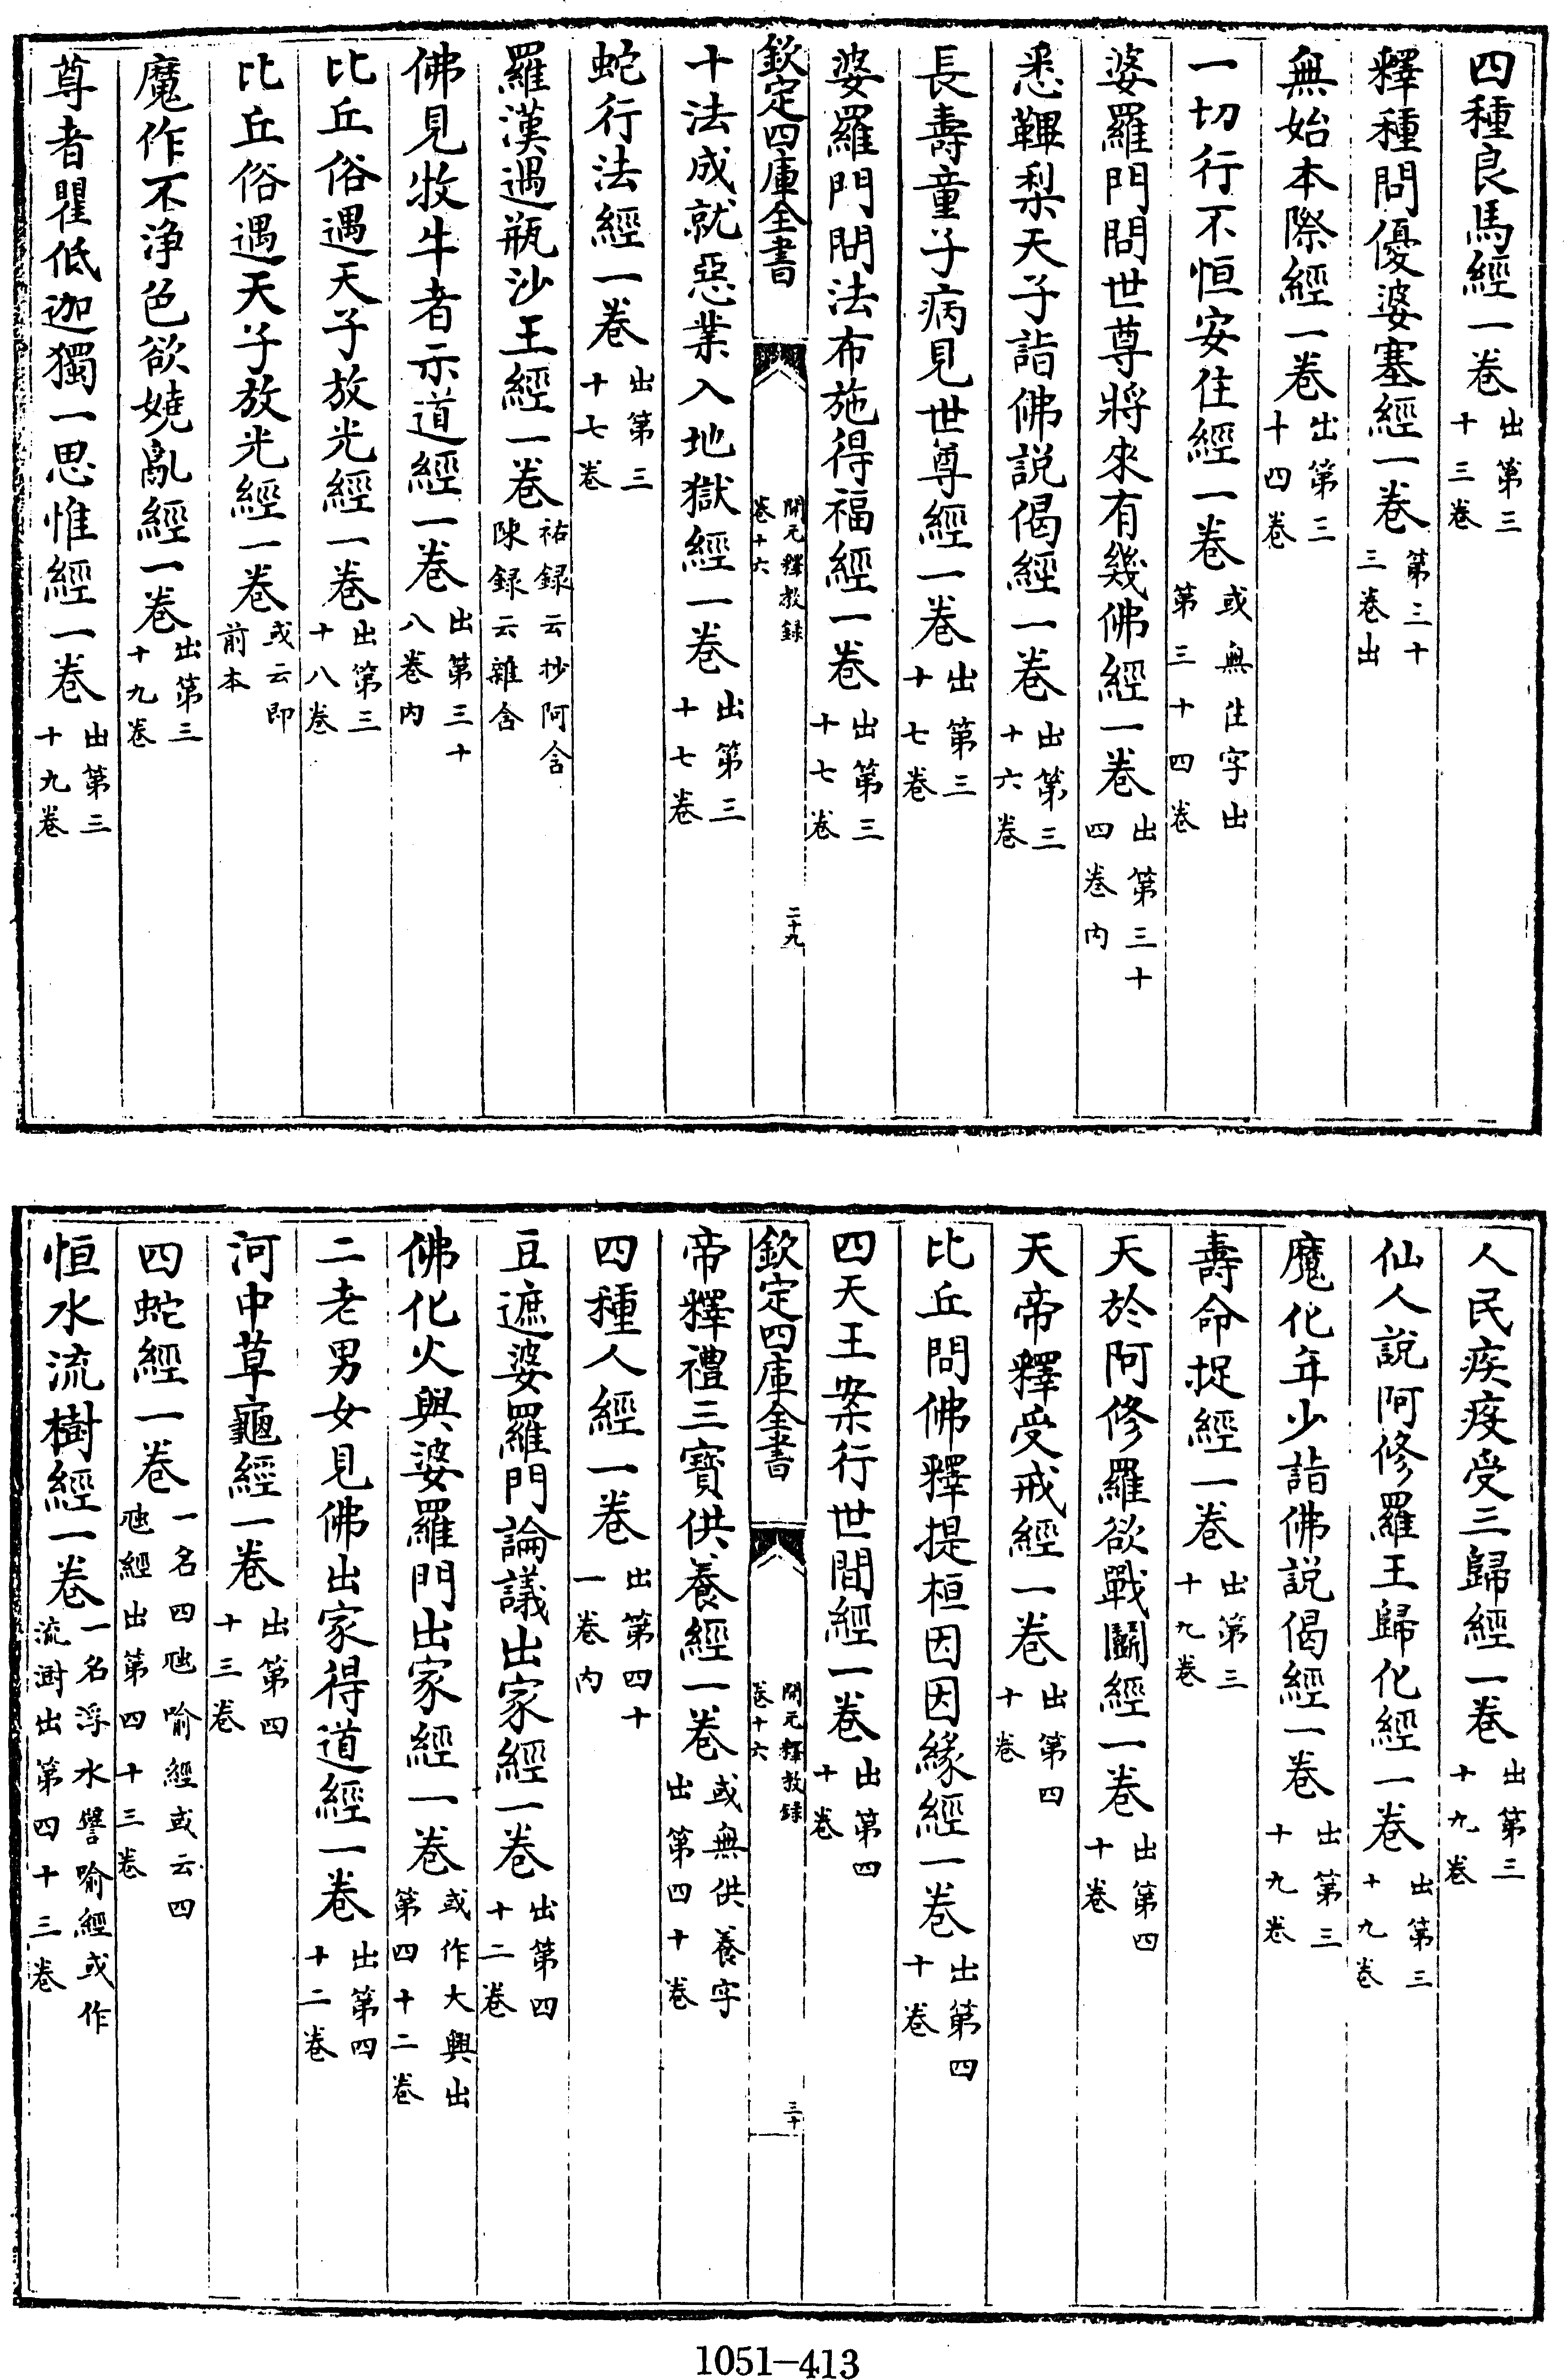 四種良馬經一卷出第三十三卷
釋種問優婆塞經一卷第三十三卷出
無始本際經一卷出第三十四卷
一切行不恒安住經一卷或無住字出第三十四卷
婆羅門問世尊將來有幾佛經一卷出第三十四卷内
悉鞞梨天子詣佛説偈經一卷出第三十六卷
長壽童子病見世尊經一卷出第三十七卷
婆羅門問法布施得福經一卷出第三十七卷
欽定四庫全書 開元釋教録卷十六 二十九
十法成就惡業入地獄經一卷出第三十七卷
蛇行法經一卷出第三十七卷
羅漢遇瓶沙王經一卷祐録云抄阿含陳録云雜含
佛見牧牛者示道經一卷出第三十八卷内
比丘俗遇天子放光經一卷出第三十八卷
比丘俗遇天子放光經一卷或云即前本
魔作不浄色欲嬈亂經一卷出第三十九卷
尊者瞿低迦獨一思惟經一卷出第三十九卷
人民疾疫受三歸經一卷出第三十九卷
仙人説阿修羅王歸化經一卷出第三十九卷
魔化年少詣佛説偈經一卷出第三十九卷
壽命捉經一卷出第三十九卷
天於阿修羅欲戰鬬經一卷出第四十卷
天帝釋受戒經一卷出第四十卷
比丘問佛釋提桓因因緣經一卷出第四十卷
四天王案行世間經一卷出第四十卷
欽定四庫全書 開元釋教録卷十六 三十
帝釋禮三寶供養經一卷或無供養字出第四十卷
四種人經一卷出第四十一卷内
豆遮婆羅門論議出家經一卷出第四十二卷
佛化火與婆羅門出家經一卷或作大與出第四十二卷
二老男女見佛出家得道經一卷出第四十二卷
河中草龜經一卷出第四十三卷
四蛇經一卷一名四虵喻經或云四虵經出第四十三卷
恒水流樹經一卷一名浮水譬喻經或作流澍出第四十三卷
1051-413